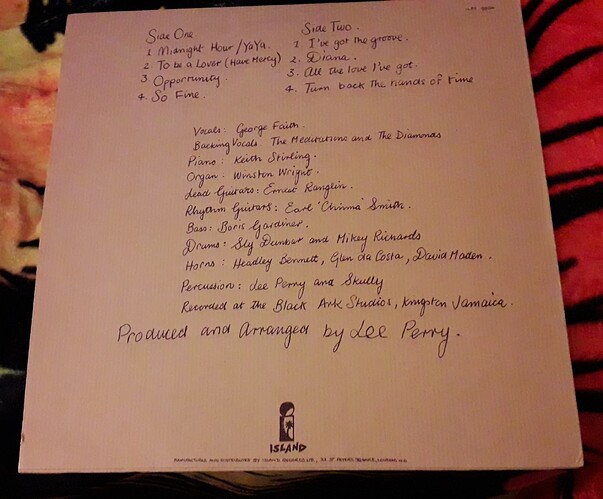 Side One
1. Midnight Hour / YaYa.
2. To be a Lover (Have Mercy)
3. Opportunity.
4. So Fine.
Side Two.
1. I've got the groove.
2. Diana.
3. All the love I've got.
4. Turn back the hands of time
Vocals: George Faith.
Backing Vocals: The Meditations and The Diamonds
Piano: Keith Stirling.
Organ: Winston Wright.
Lead Guitars: Ernest Ranglin.
Rhythm Guitars: Earl 'Chinna' Smith.
Bass: Boris Gardiner.
Drums: Sly Dunbar and Mikey Richards
Horns: Headley Bennett, Glen da Costa, David Maden.
Percussion: Lee Perry and Skully
Recorded at the Black Ark Studios, Kingston Jamaica.
Produced and Arranged by Lee Perry.
ISLAND
MANUFACTURED AND DISTRIBUTED BY ISLAND RECORDS LTD.,